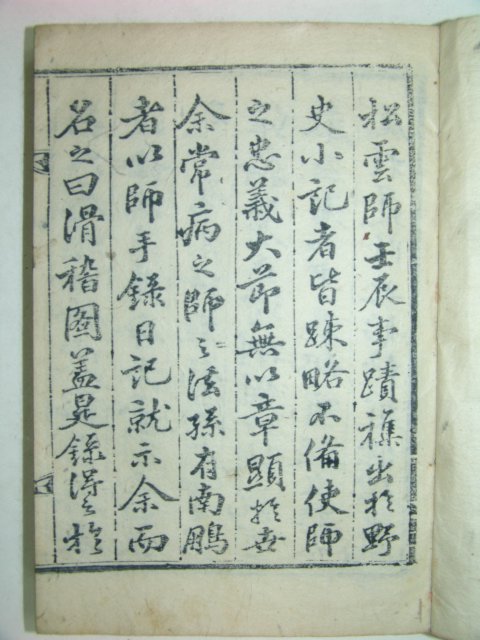 松雲師壬辰事蹟雜出於野
史小記者皆踈略不備使師
之忠義大節無以章顯於世
余常病之師之法孫有南鵬
者以師手錄日記就示余而
名之曰滑稽圖盖是錄得之於